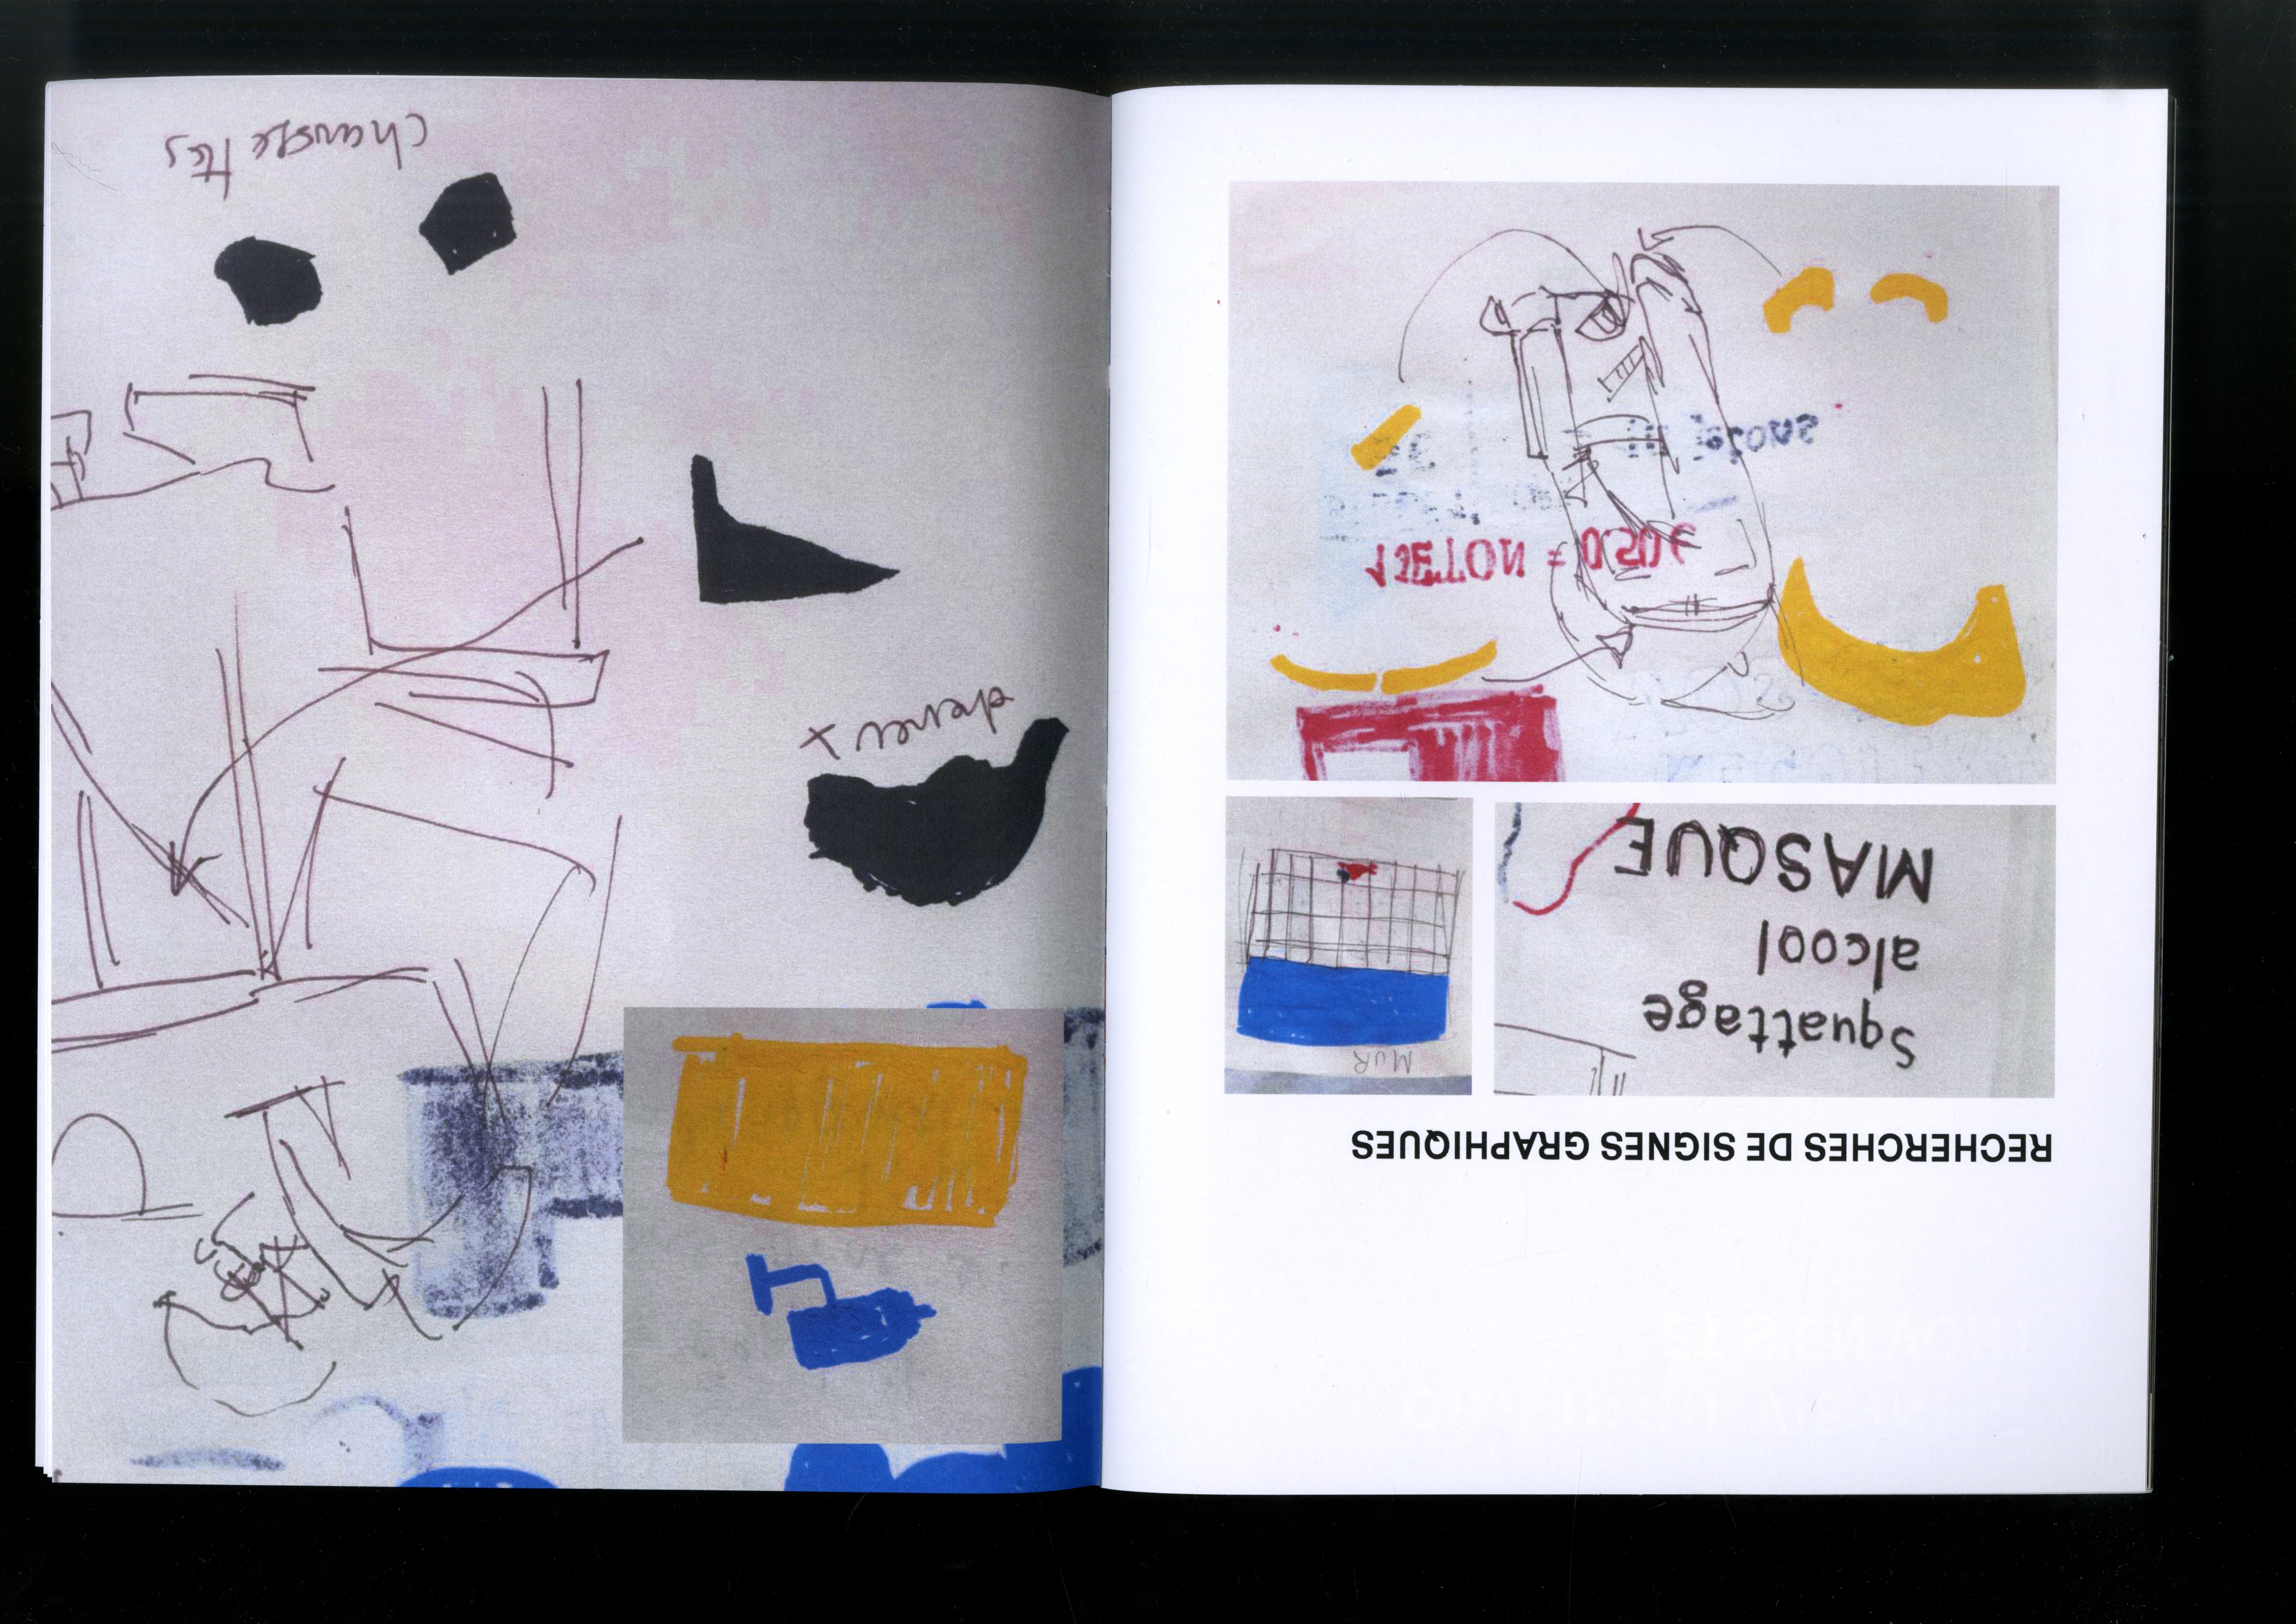 RECHERCHES DE SIGNES GRAPHIQUES
Squattage
alcool
MASQUE
MUR
1 JETON = 0.50€
jetons
cheveux
chaussettes